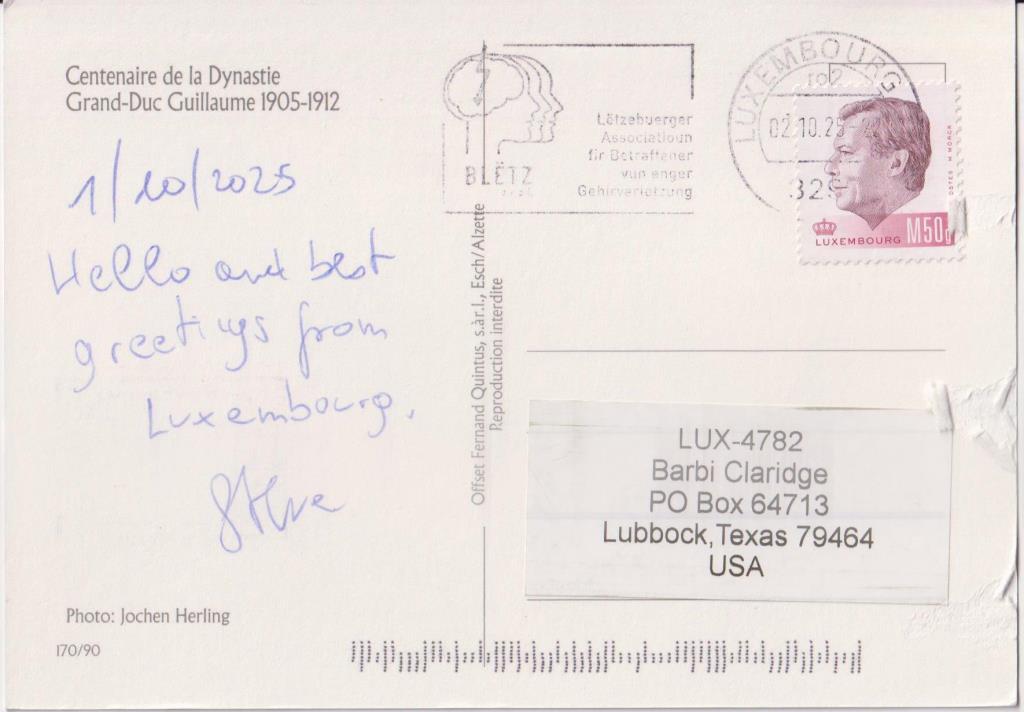 Centenaire de la Dynastie
Grand-Duc Guillaume 1905-1912
1/10/2025
Hello and best
greetings from
Luxembourg.
Steve
Photo: Jochen Herling
170/90
Offset Fernand Quintus, s.àr.l., Esch/Alzette
Reproduction interdite
BLËTZ
Lëtzebuerger
Associatioun
fir Betraffener
vun enger
Gehirverletzung
LUXEMBOURG
02.10.25
329
OSTES M MÖRCK
LUXEMBOURG M50g
LUX-4782
Barbi Claridge
PO Box 64713
Lubbock,Texas 79464
USA